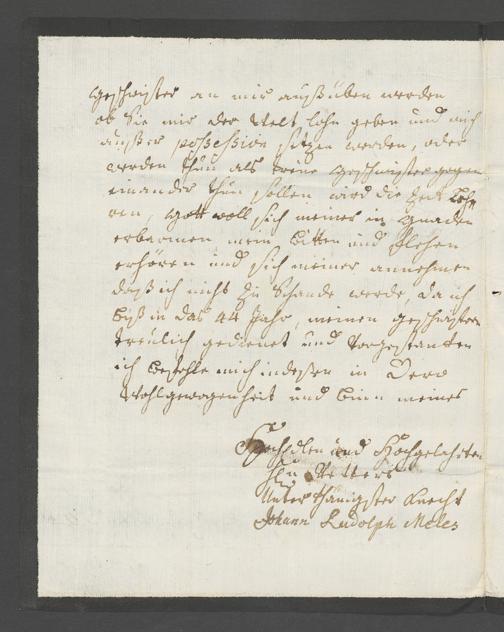 geschwister an mir außüben werden
ob Sie mir der Welt lohn geben und mich
außer possession sezen werden, oder
werden thun als treue geschwister gegen
einander thun sollen, wird die Zeit lehr
en, Gott woll sich meiner in Gnaden
erbarmen mein bitten und flehen
erhören und sich meiner annehmen
daß ich nicht zu Schande werde, da ich
biß in das 44 Jahr, meinen geschwistern
treulich gedienet und vorgestanden
ich befehle mich indeßen in Dero
Wohlgewogenheit und binn meines
HochEdlen und Hochgelahrten
Hrn Vetters
Unterthänigster Knecht
Johann Ludolph Meles